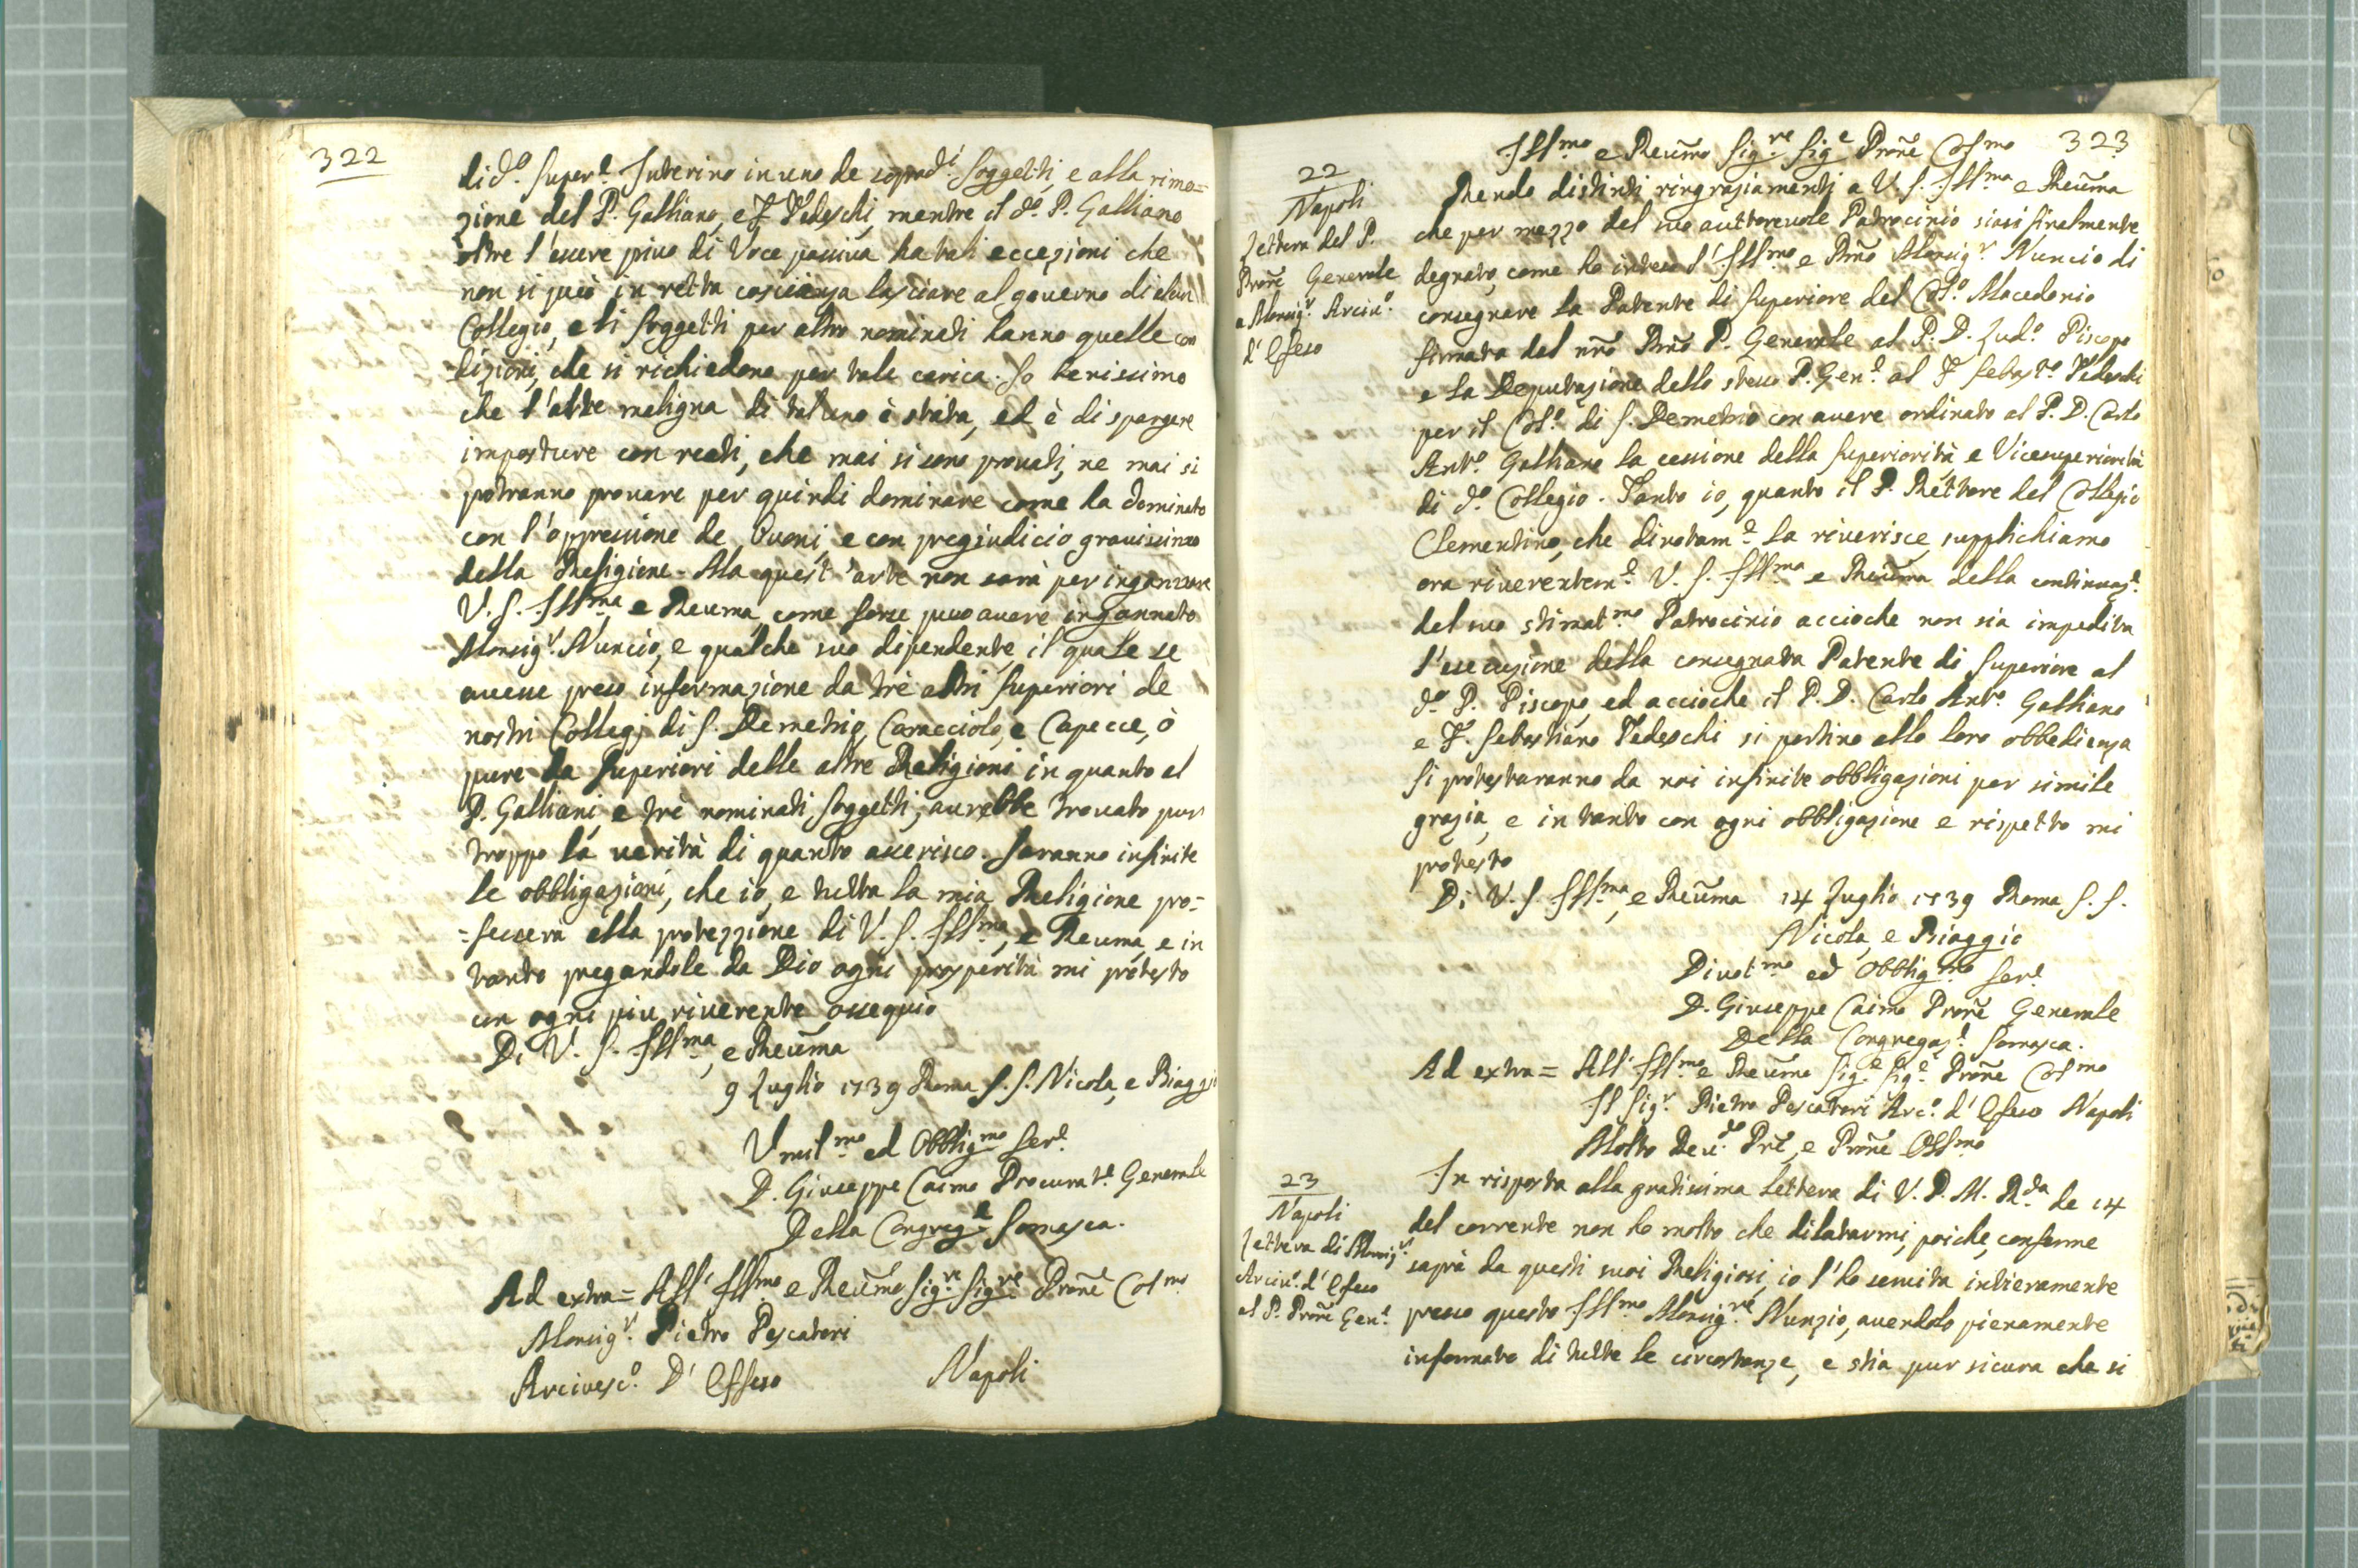 322
di d.º Super.e Interino in uno de soprad.i Soggetti, e alla rimo=
zione del P. Galliano, e F. Tedeschi, mentre il d.º P. Galliano
oltre l'essere privo di Voce passiva ha tali eccezioni che
non si può in retta coscienza lasciare al governo di alcun
Collegio, e li Soggetti per altro nominati hanno quelle con
dizioni, che si richiedono per tale carica. So benissimo
che l'arte maligna di taluno è stata, ed è di spargere
imposture con reati, che mai si sono provati, ne mai si
potranno provare per quindi dominare come ha dominato
con l'oppressione de Buoni, e con pregiudicio gravissimo
della Religione. Ma quest'arte non sarà per ingannare
V. S. Ill.ma e Reuma, come forse può avere ingannato
Monsig.r Nuncio, e qualche suo dipendente, il quale se
avesse preso informazione da trè altri Superiori de
nostri Collegj di S. Demetrio, Caracciolo, e Capecce, ò
pure da Superiori delle altre Religioni in quanto al
P. Galliani, e trè nominati Soggetti, aurebbe trovato pur
troppo la verità di quanto asserisco. Saranno infinite
le obbligazioni, che io, e tutta la mia Religione pro=
=fessera alla protezzione di V. S. Ill.ma, e Reuma, e in
tanto pregandole da Dio ogni prosperità mi protesto
con ogni piu riverente ossequio
Di V. S. Ill.ma, e Reuma
9 Luglio 1739 Roma S. S. Nicola, e Biaggio
Umil.mo ed Obblig.mo Ser.e
D. Giuseppe Caimo Procurat.e Generale
Della Congreg.e Somasca.
Ad extra = All' Ill.mo e Reumo Sig.re Sig.re Prone Col.mo
Monsig.r Pietro Pescatori
Arcivesc.º D' Effeso Napoli
323
Ill.mo e Reumo Sig.re Sig.e Prone Col.mo
22
Napoli
Lettera del P.
Prone Generale
a Monsig.r Arciv.º
d' Efeso
Rendo distinti ringraziamenti a V. S. Ill.ma e Reuma
che per mezzo del suo auttorevole Patrocinio siasi finalmente
degnato, come ho inteso l' Ill.mo e Rmo Monsig.r Nuncio di
consegnare la Patente di Superiore del Col.º Macedonio
firmata dal nro Rmo P. Generale al P. D. Lud.º Piscopo
e la Deputazione dello stesso P. Gen.e al F. Sebast.º Tedeschi
per il Col.º di S. Demetrio con avere ordinato al P. D. Carlo
Ant.º Galliano la cessione della Superiorità e Vicesuperiorità
di d.º Collegio. Tanto io, quanto il P. Rettore del Collegio
Clementino, che divotam.e la riverisce, supplichiamo
ora riverentem.e V. S. Ill.ma e Reuma della continuaz.e
del suo stimat.mo Patrocinio accioche non sia impedita
l'esecuzione della consegnata Patente di Superiore al
d.º P. Piscopo, ed accioche il P. D. Carlo Ant.º Galliano
e F. Sebastiano Tedeschi si portino alle loro obbedienza
Si protestaranno da noi infinite obbligazioni per simile
grazia, e in tanto con ogni obbligazione e rispetto mi
protesto
Di V. S. Ill.ma, e Reuma 14 Luglio 1739 Roma S. S.
Nicola, e Biaggio
Divot.mo ed Obblig.mo Ser.e
D. Giuseppe Caimo Prone Generale
Della Congregaz.e Somasca.
Ad extra = All' Ill.mo e Reumo Sig.e Sig.e Prone Col.mo
Il Sig.r Pietro Pescatori Arc.º d' Efeso Napoli
Molto Reu.do Pre, e Prone Oss.mo
23
Napoli
Lettera di Monsig.r
Arciv.º d' Efeso
al P. Prone Gen.e
In risposta alla gratissima Lettera di V. P. M. R.da de 14
del corrente non ho molto che dilatarmi, poiche, conforme
saprà da questi suoi Religiosi, io l'ho servita intieramente
presso questo Ill.mo Monsig.re Nunzio, avendolo pienamente
informato di tutte le circostanze, e stia pur sicura che si